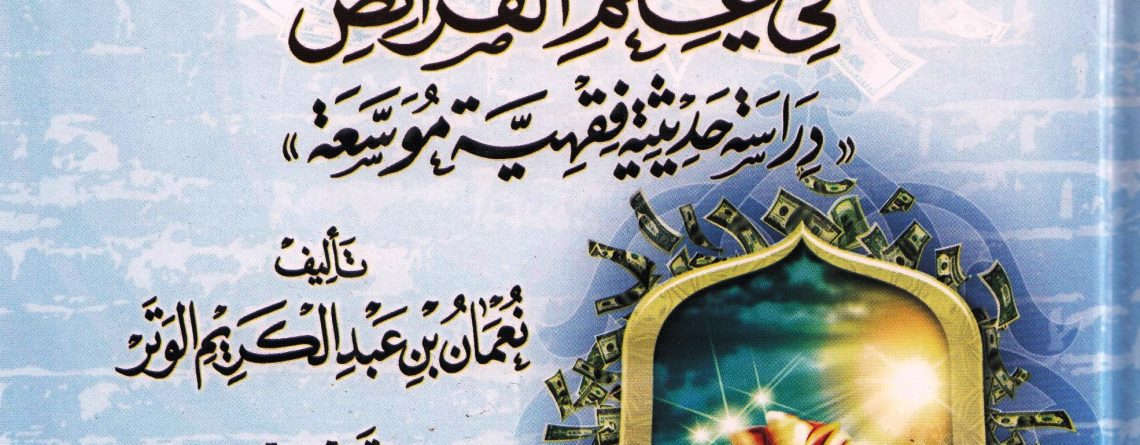 فِي عِلْمِ الفَرَائِضِ
« دِرَاسَة حَدِيْثِيَّة فِقْهِيَّة مُوَسَّعَة »
تَأْلِيفْ
نُعْمَانُ بْنِ عَبْدِ الْكَرِيْمِ الوَتَرْ